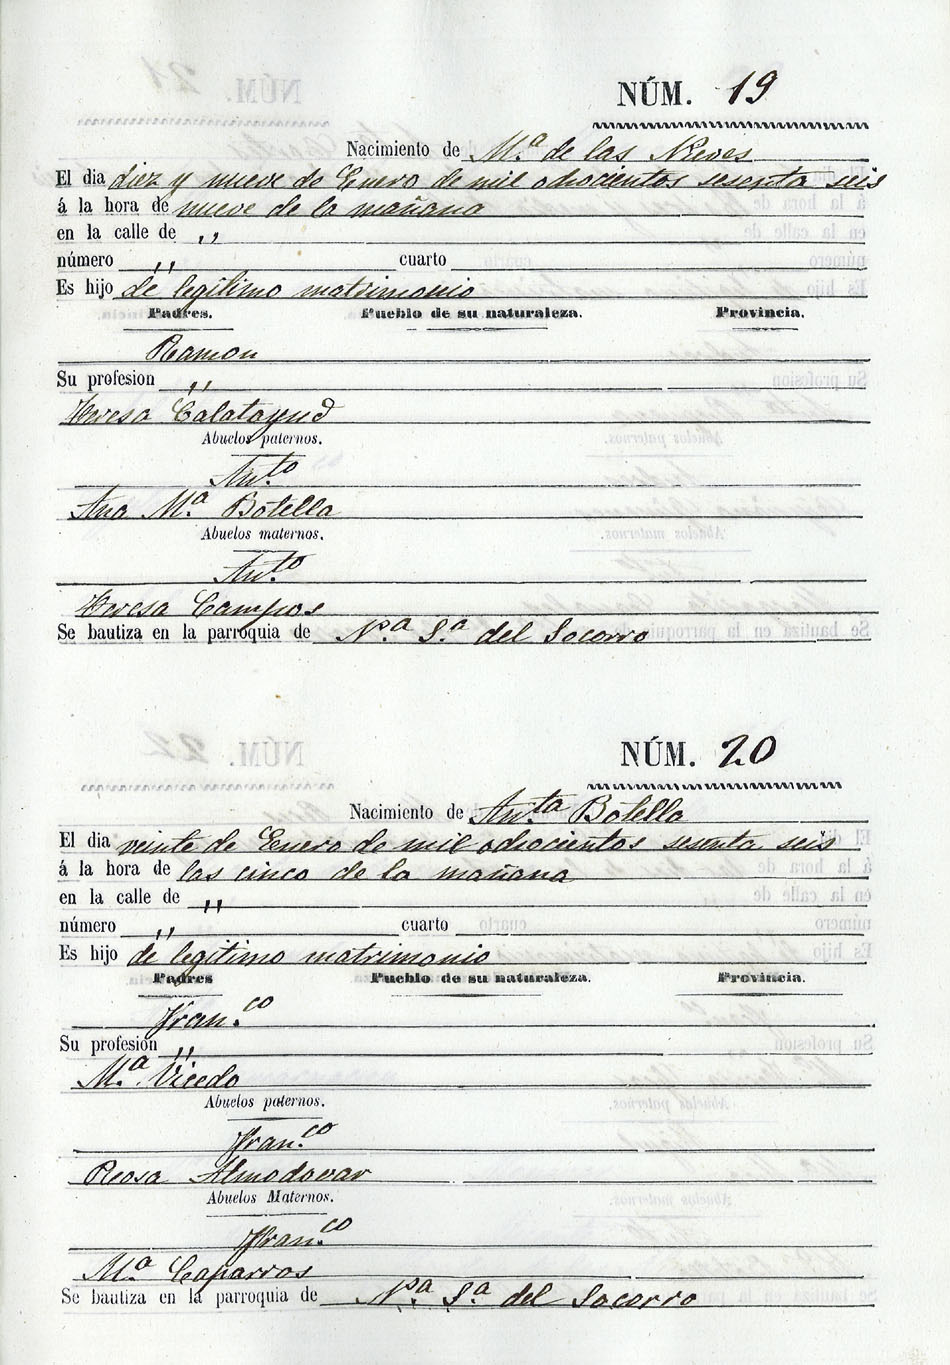 NÚM. 19
Nacimiento de Mª de las Nieves
El dia diez y nueve de Enero de mil ochocientos sesenta seis
á la hora de nueve de la mañana
en la calle de ,,
número ,, cuarto
Es hijo de legítimo matrimonio
Padres. Pueblo de su naturaleza. Provincia.
Ramon
Su profesion ,,
Teresa Calatayud
Abuelos paternos.
Anto
Ana Mª Botella
Abuelos maternos.
Anto
Teresa Campos
Se bautiza en la parroquia de Nª Sª del Socorro
NÚM. 20
Nacimiento de Anta Botella
El dia veinte de Enero de mil ochocientos sesenta seis
á la hora de las cinco de la mañana
en la calle de ,,
número ,, cuarto
Es hijo de legítimo matrimonio
Padres Pueblo de su naturaleza. Provincia.
Franco
Su profesión ,,
Mª Vicedo
Abuelos paternos.
Franco
Rosa Almodovar
Abuelos Maternos.
Franco
Mª Caparros
Se bautiza en la parroquia de Nª Sª del Socorro